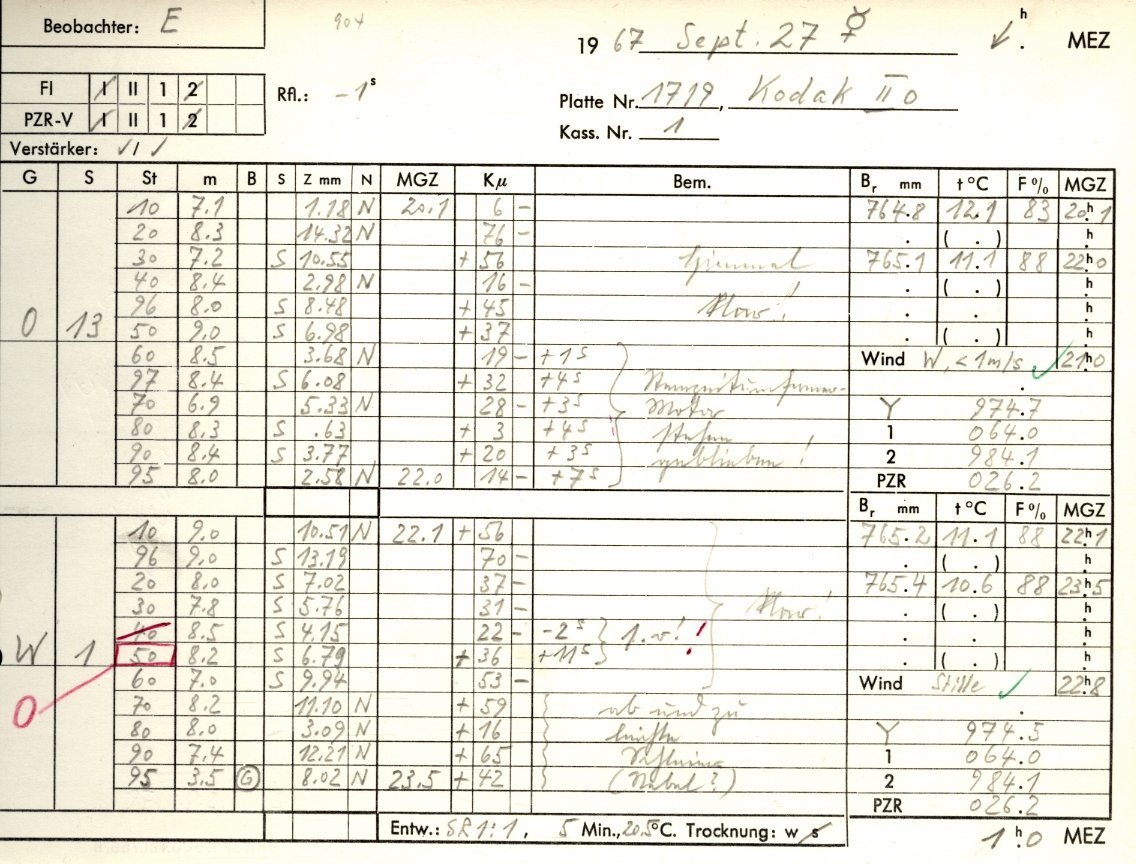 Beobachter: E
904
19 67 Sept. 27 ☿ h . MEZ
FI I II 1 2
PZR-V I II 1 2
Rfl.: -1 s
Platte Nr. 1719, Kodak II o
Kass. Nr. 1
Verstärker: ✓/✓
G S St m B S Z mm N MGZ Kμ Bem.
10 7.1 1.18 N 20.1 6 -
20 8.3 14.32 N 76 -
30 7.2 S 10.55 + 56 Himmel
40 8.4 2.98 N 16 -
96 8.0 S 8.48 + 45 klar!
O 13
50 9.0 S 6.98 + 37
60 8.5 3.68 N 19 - +1s
97 8.4 S 6.08 + 32 +4s
70 6.9 5.33 N 28 - +3s Motor
80 8.3 S .63 + 3 +4s stehen
90 8.4 S 3.77 + 20 +3s geblieben!
95 8.0 2.58 N 22.0 14 - +7s
10 9.0 10.51 N 22.1 + 56
96 9.0 S 13.19 70 -
20 8.0 S 7.02 37 -
30 7.8 S 5.76 31 - klar!
40 8.5 S 4.15 22 - -2s 1.v! !
W 1
50 8.2 S 6.79 + 36 +11s
60 7.0 S 9.94 53 -
O
70 8.2 11.10 N + 59 ab und zu
80 8.0 3.09 N + 16 leichte
90 7.4 12.21 N + 65 Schleier
95 3.5 G 8.02 N 23.5 + 42 (Nebel?)
Entw.: SR 1:1, 5 Min., 20.5 °C. Trocknung: w s
Br mm t °C F % MGZ
764.8 12.1 83 20h.1
. ( . ) h.
765.1 11.1 88 22h.0
. ( . ) h.
. . h.
. ( . ) h.
Wind W, <1m/s ✓ 21h.0
.
Y 974.7
1 064.0
2 984.1
PZR 026.2
Br mm t °C F % MGZ
765.2 11.1 88 22h.1
. ( . ) h.
765.4 10.6 88 23h.5
. ( . ) h.
. . h.
. ( . ) h.
Wind Stille ✓ 22h.8
.
Y 974.5
1 064.0
2 984.1
PZR 026.2
1 h.0 MEZ